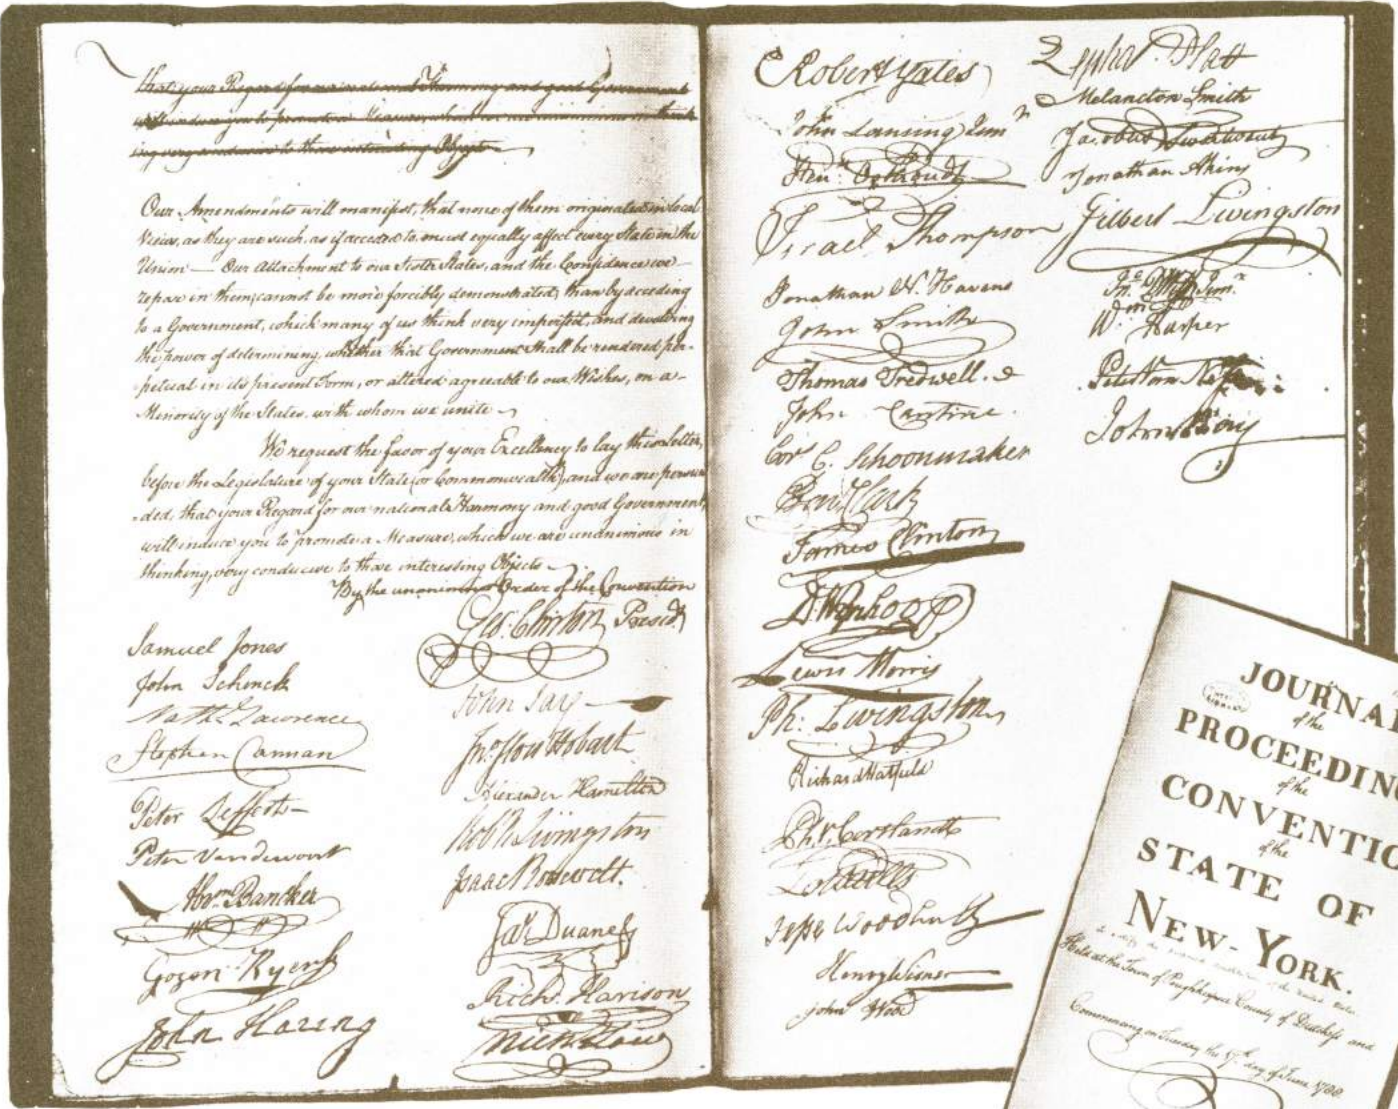 that your Regard for our national Harmony and good Government
will induce you to promote a Measure which we are unanimous in think
ing very conducive to those interesting Objects
Our Amendments will manifest, that none of them originated in local
Views, as they are such, as if acceded to, must equally affect every State in the
Union — Our Attachment to our Sister States, and the Confidence we
repose in them, cannot be more forcibly demonstrated, than by acceding
to a Government, which many of us think very imperfect, and devolving
the power of determining, whether that Government shall be rendered per-
petual in its present Form, or altered agreeable to our Wishes, on a
Minority of the States, with whom we unite
We request the favor of your Excellency to lay this Letter,
before the Legislature of your State (or Commonwealth), and we are persua
-ded, that your Regard for our national Harmony and good Government,
will induce you to promote a Measure, which we are unanimous in
thinking, very conducive to those interesting Objects
By the unanimous Order of the Convention
Geo: Clinton Presidt
Samuel Jones
John Schenck
Nathl Lawrence
Stephen Carman
Peter Lefferts
Peter Vandervoort
Abrm Bancker
Gozen Ryerss
John Haring
John Jay
Jno. Sloss Hobart
Alexander Hamilton
Rob R Livingston
Isaac Roosevelt.
Jas Duane
Richd. Harison
Nichs Low
Robert Yates
John Lansing Junr
Israel Thompson
Jonathan N. Havens
John Smith
Thomas Tredwell.
John Cantine.
Cor C. Schoonmaker
James Clinton
Lewis Morris
Ph: Livingston
Richard Hatfield
Ph. V. Cortlandt
Jesse Woodhull
Henry Wisner
John Wood
Zepha. Platt
Melancton Smith
Jacobus Swartwout
Jonathan Akins
Gilbert Livingston
Wm. Harper
JOURNA
of the
PROCEEDIN
of the
CONVENTIO
of the
STATE OF
NEW-YORK.
Held at the Town of Poughkeepsie County of Dutchess and
Commencing on Tuesday the 17th day of June 1788